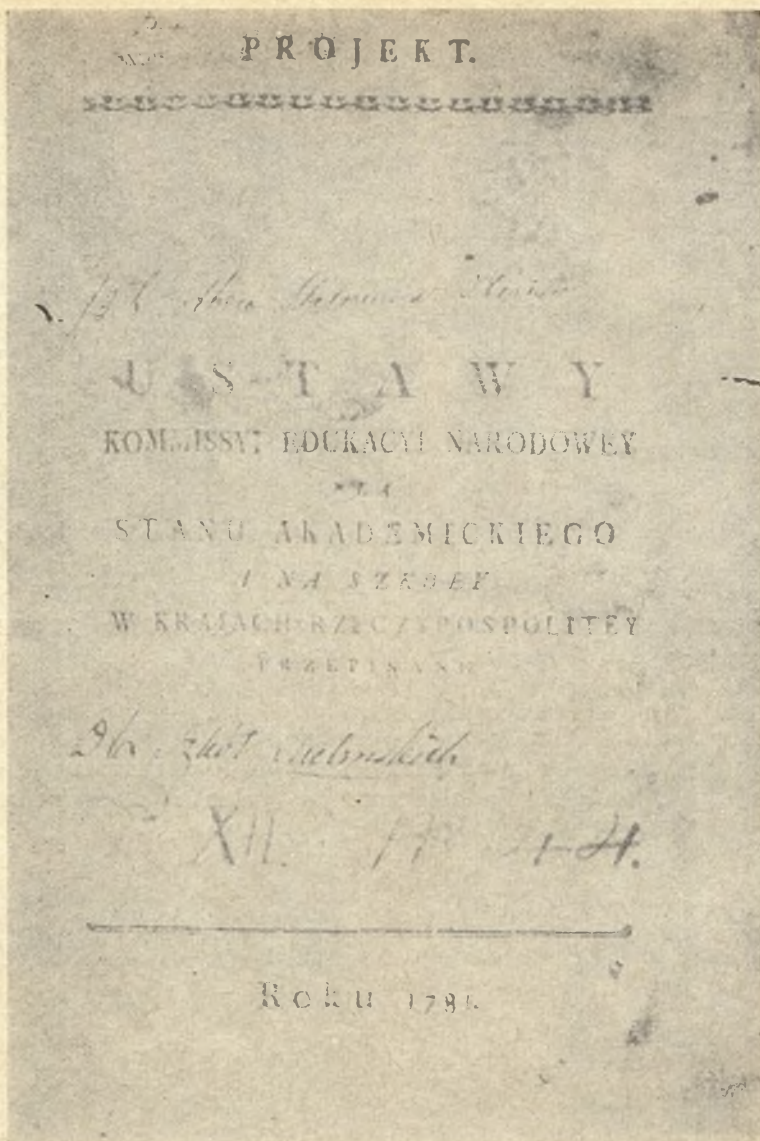 PROJEKT.
USTAWY
KOMMISSYI EDUKACYI NARODOWEY
DLA
STANU AKADEMICKIEGO
I NA SZKOŁY
W KRAIACH RZECZYPOSPOLITEY
PRZEPISANE
Dla Szkół
XII.
Roku 1781.